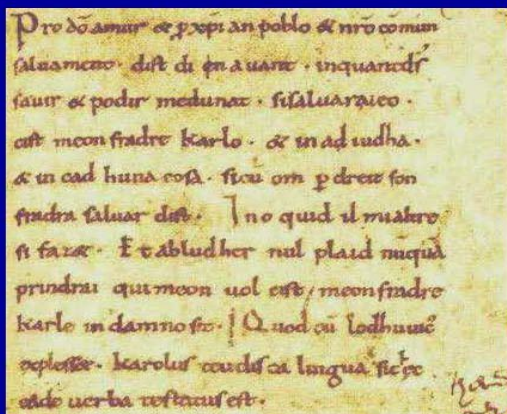 Pro dō amur & p xp̄ian poblo & nrō comun
saluament. dist di en auant. inquantdš
sauir & podir medunat. sisaluaraieo.
cist meon fradre karlo. & in ad iudha.
& in cad huna cosa. sicū om p dreit son
fradra saluar dist. Ino quid il mialtre
si faz&. Et abludher nul plaid nūquā
prindrai qui meon uol cist, meon fradre
karle in damno sit. Quod cū lodhuuic̄
explesset. karolus teudisca lingua sic ec
eade uerba testatus est.